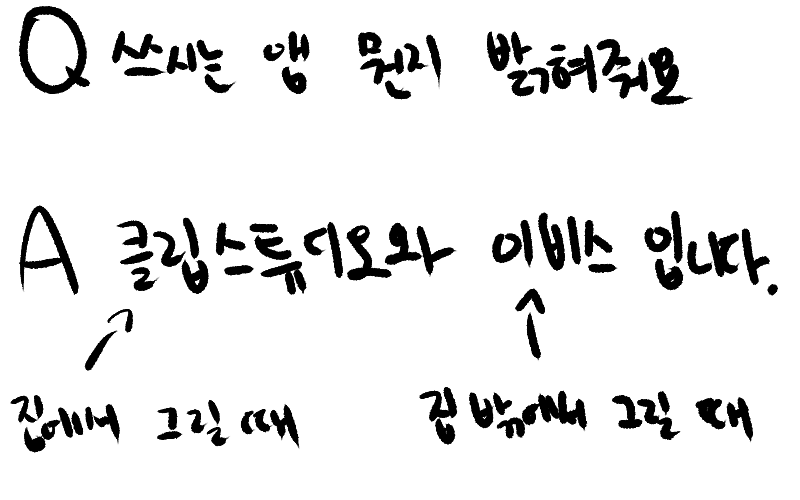 Q 쓰시는 앱 뭔지 밝혀줘요
A 클립스튜디오와 이비스 입니다.
집에서 그릴 때
집 밖에서 그릴 때